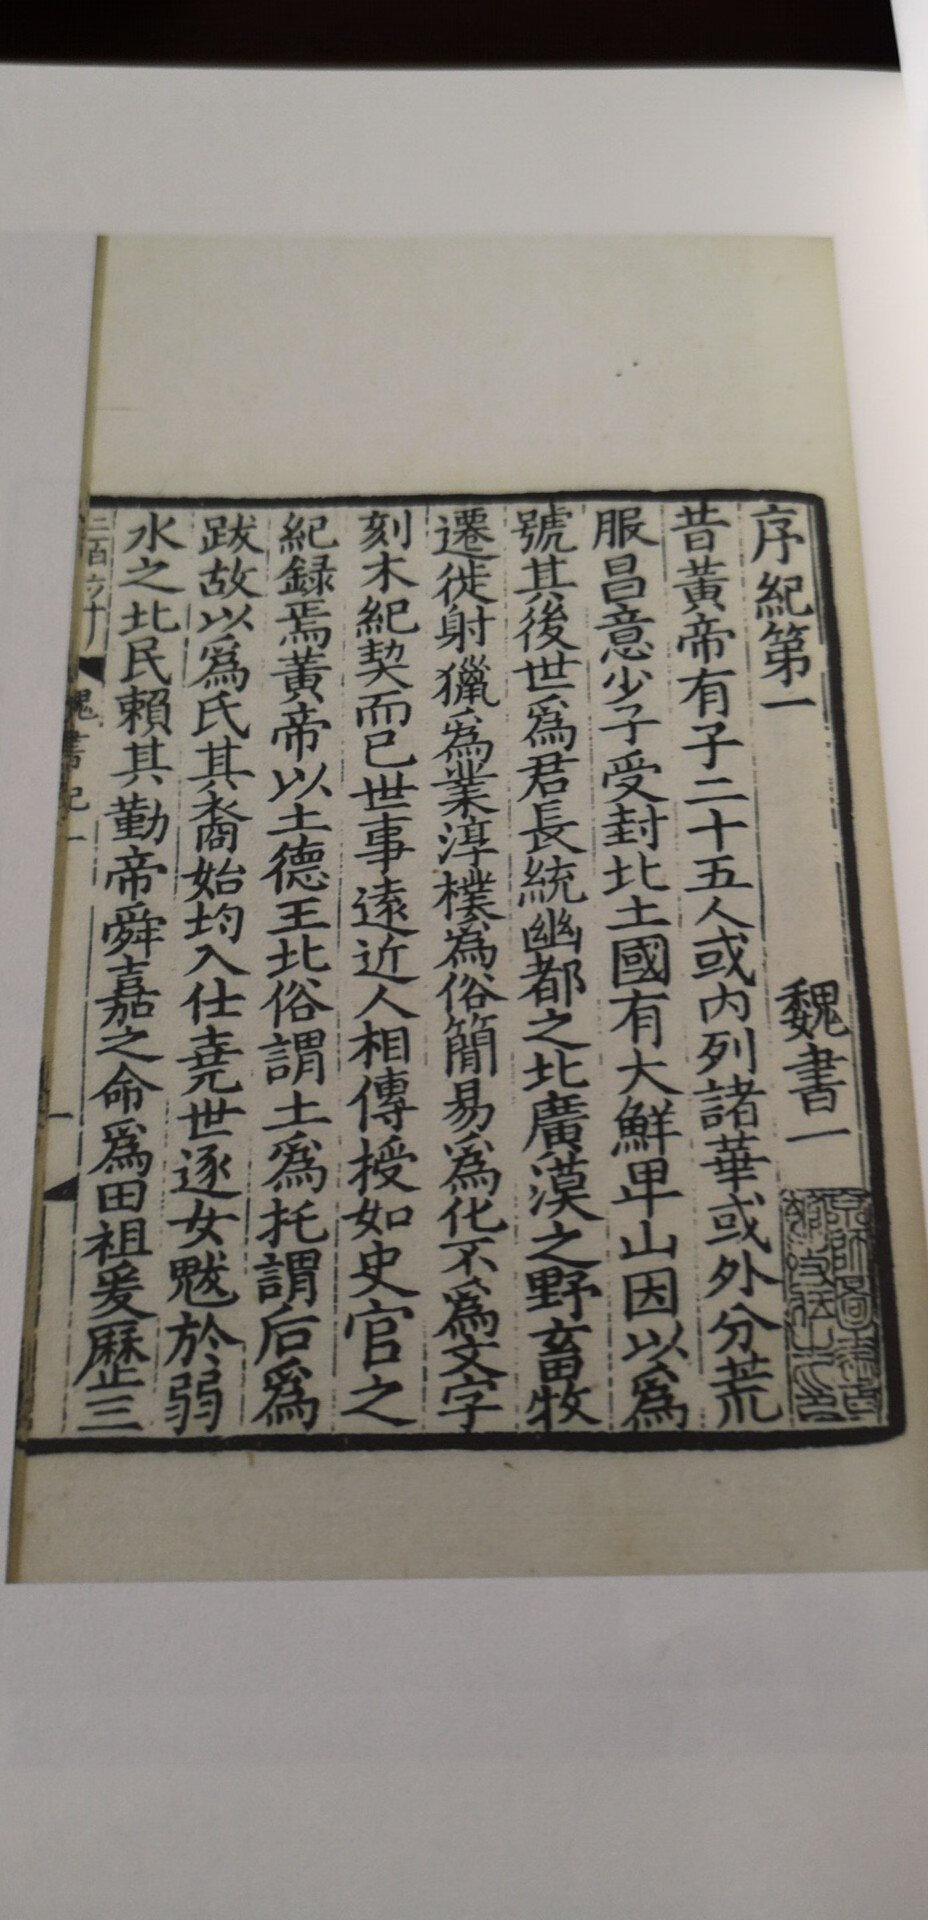 序紀第一 魏書一
昔黃帝有子二十五人或内列諸華或外分荒
服昌意少子受封北土國有大鮮卑山因以爲
號其後世爲君長統幽都之北廣漠之野畜牧
遷徙射獵爲業淳樸爲俗簡易爲化不爲文字
刻木紀契而已世事遠近人相傳授如史官之
紀録焉黃帝以土德王北俗謂土爲托謂后爲
跋故以爲氏其裔始均入仕堯世逐女魃於弱
水之北民賴其勤帝舜嘉之命爲田祖爰歷三
魏書紀一
一